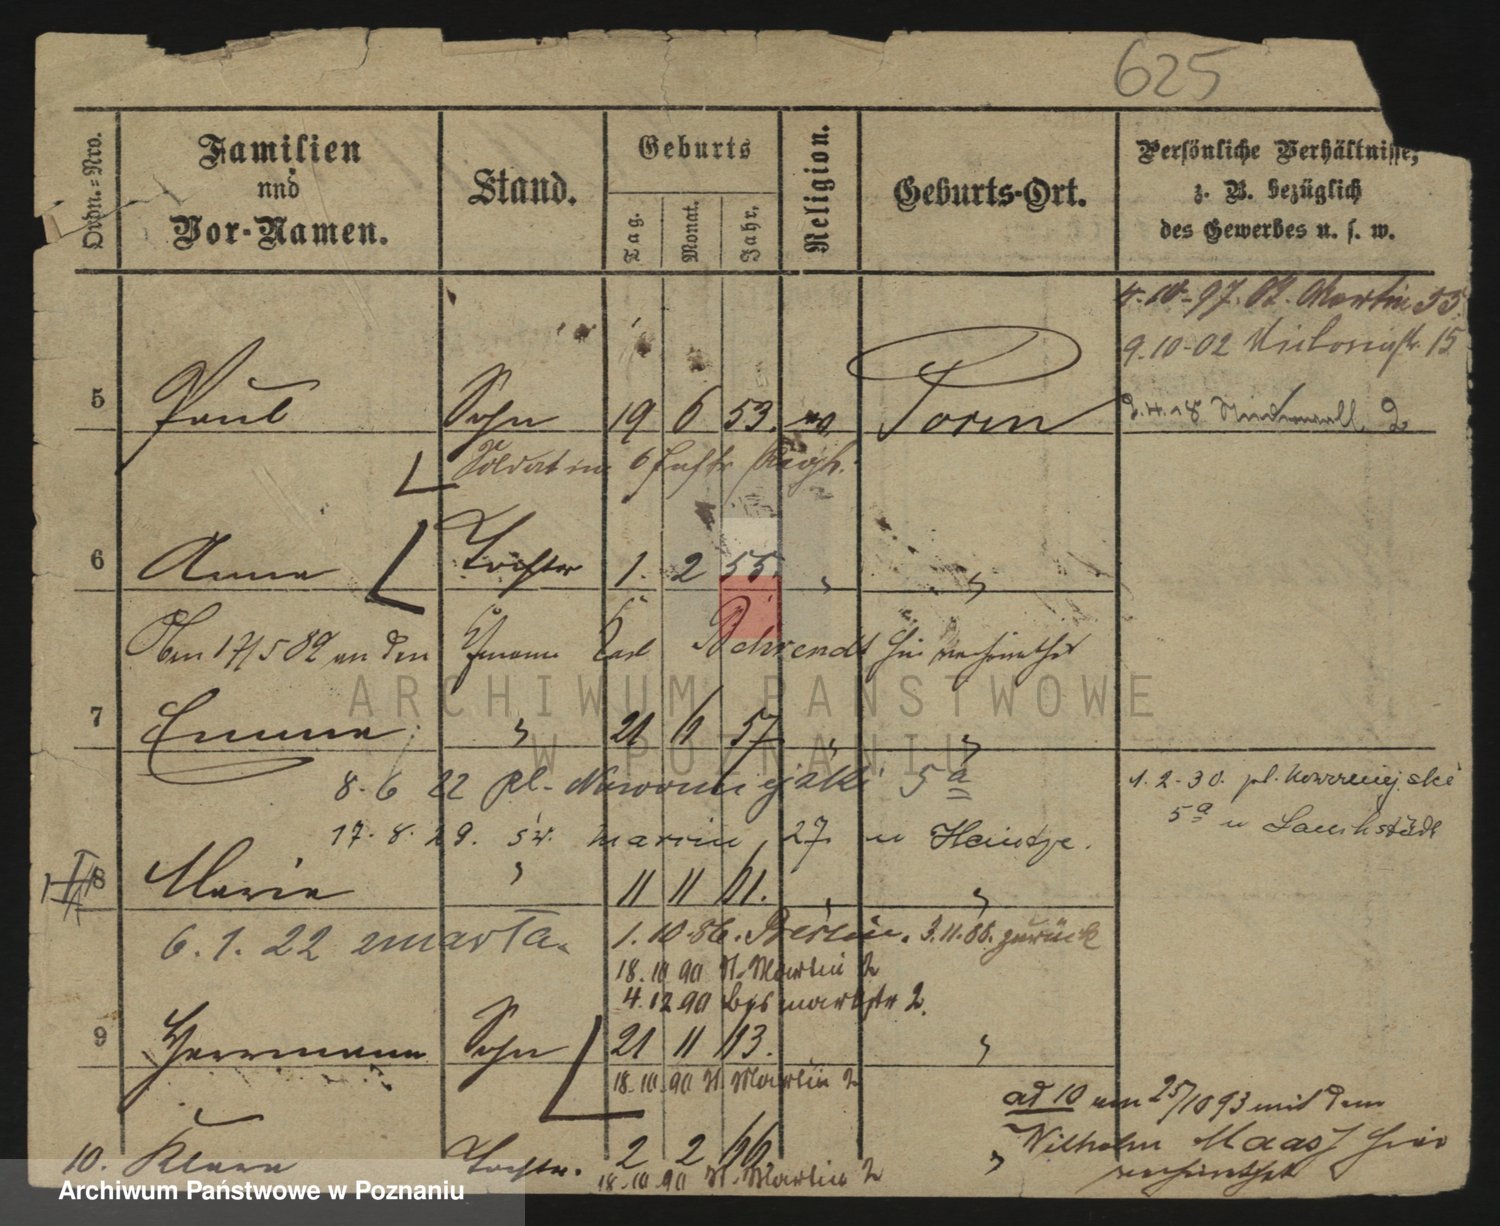 625
Ordn.=Nro.
Familien
und
Vor-Namen.
Stand.
Geburts
Tag.
Monat.
Jahr.
Religion.
Geburts-Ort.
Persönliche Verhältnisse,
z. B. bezüglich
des Gewerbes u. s. w.
4.10.97. St. Martin 33.
9.10.02 Victoriastr. 15
5 Paul Sohn 19 6 53. Posen
2.4.18 2
Soldat im 6
6 Anna Tochter 1. 2 55. " "
Am 17/5 82 an den Karl Behrendt hier verheirathet
7 Emma " 21 6 57 " "
8.6 22 pl. Nowomiejski 5a
1.2.30. pl. Nowomiejski
17.8.29. św. marcin 27 u Heintze.
5a u Lauchstädt
8 Maria " 11 11 61. " "
6.1.22 zmarła
1.10.86. Berlin. 3.11.86. zurück
18.10.90 St. Martin 2
4.12.90 Bismarckstr 2.
9 Herrmann Sohn 21 11 63. "
18.10.90 St. Martin 2
ad 10 am 25/10 93 mit dem
Wilhelm Maass hier
verheirathet
10. Klara Tochter. 2 2 66 "
18.10.90 St. Martin 2
ARCHIWUM PAŃSTWOWE
W POZNANIU
Archiwum Państwowe w Poznaniu